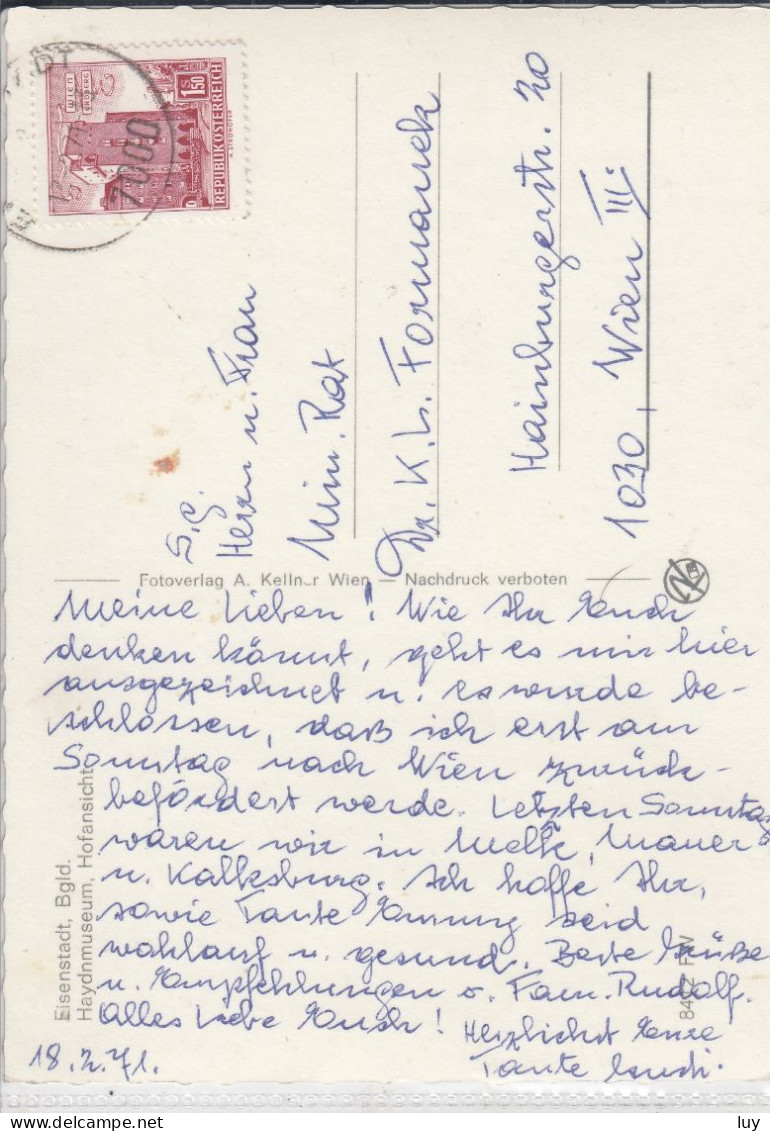 WIEN
ERDBERG
S 1.50
REPUBLIK ÖSTERREICH
7000
S.g.
Herrn u. Frau
Min. Rat
Dr. K. L. Formanek
Hainburgerstr. 20
1030, Wien III.
Fotoverlag A. Kellner Wien — Nachdruck verboten
Meine Lieben! Wie Ihr Euch
denken könnt, geht es mir hier
ausgezeichnet u. es wurde be-
schlossen, daß ich erst am
Sonntag nach Wien zurück-
befördert werde. Letzten Sonntag
waren wir in Melk, Mauer
u. Kalksburg. Ich hoffe Ihr,
sowie Tante Emmy seid
wohlauf u. gesund. Beste Grüße
u. Empfehlungen v. Fam. Rudolf.
Alles Liebe Euch! Herzlichst Eure
18.2.71. Tante
Eisenstadt, Bgld.
Haydnmuseum, Hofansicht